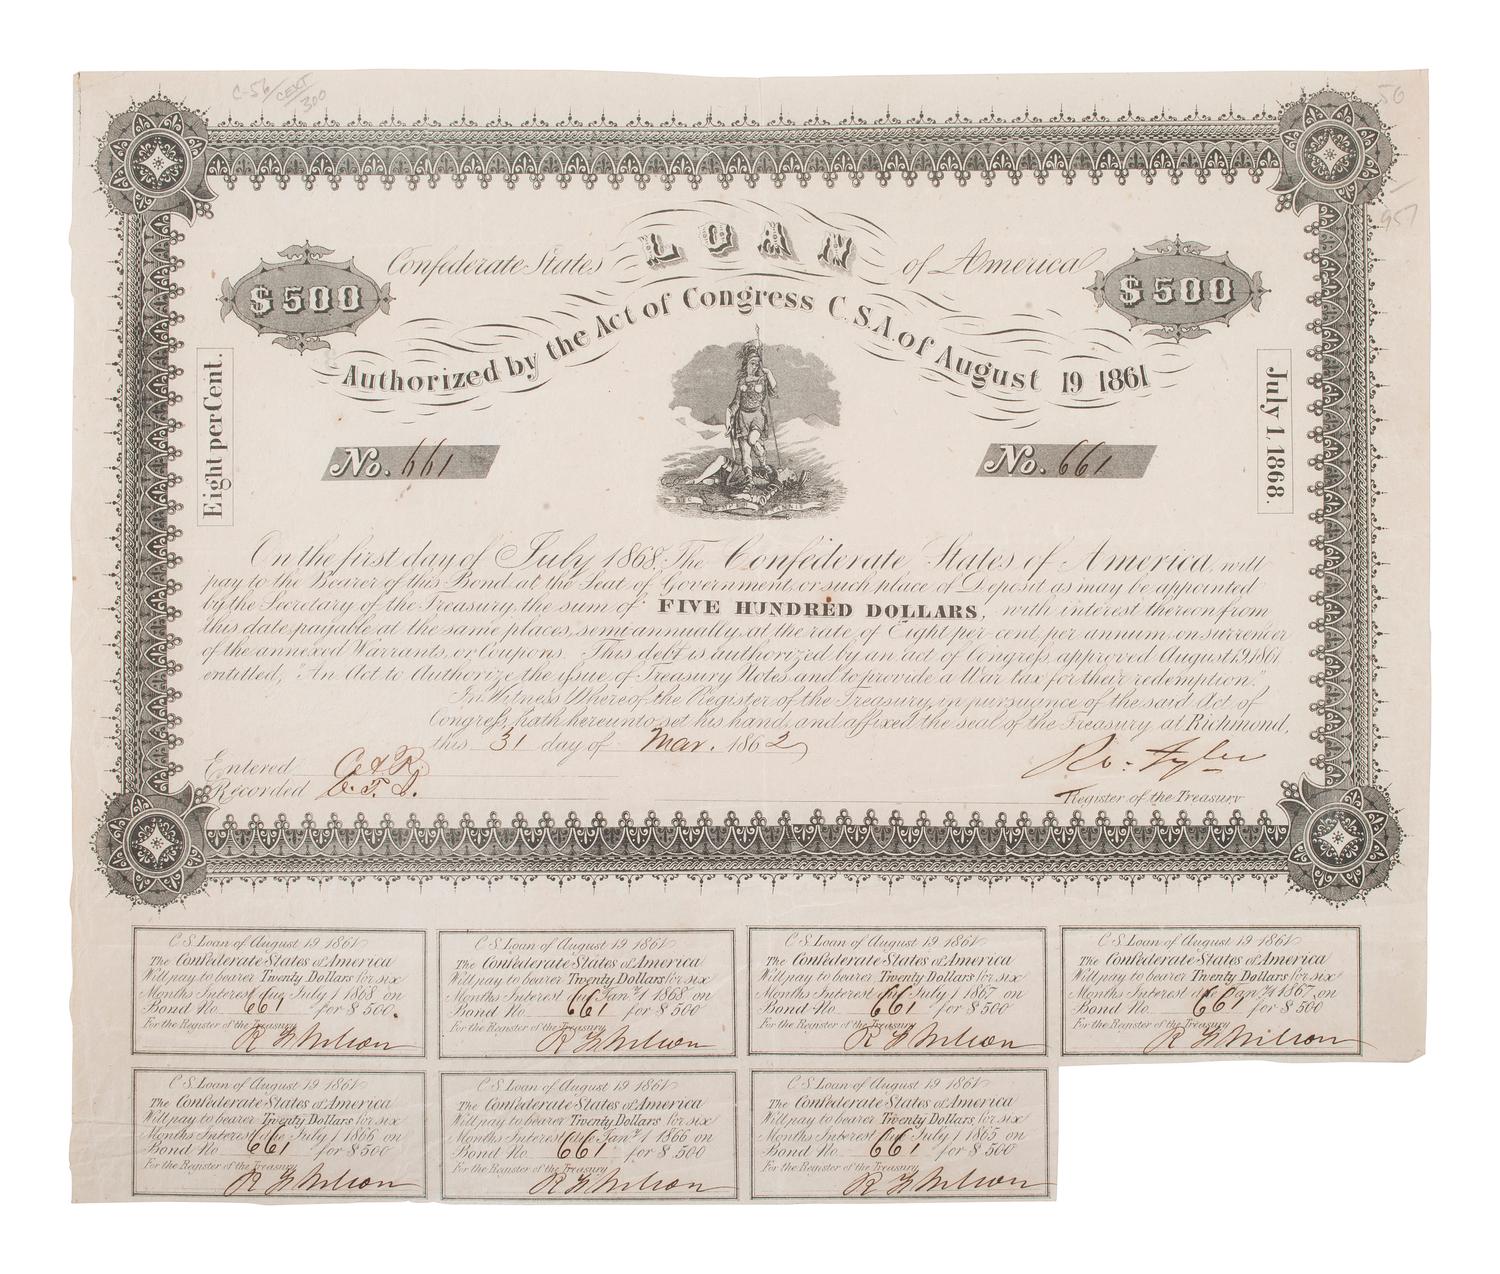 C-56/CEXT/300
50
957
Confederate States LOAN of America
$500
$500
Authorized by the Act of Congress C.S.A. of August 19 1861
Eight per Cent.
July 1, 1868.
No. 661
No. 661
On the first day of July 1868, The Confederate States of America, will
pay to the Bearer of this Bond, at the Seat of Government, or such place of Deposit as may be appointed
by the Secretary of the Treasury, the sum of FIVE HUNDRED DOLLARS, with interest thereon from
this date, payable at the same places, semi-annually, at the rate of Eight per cent, per annum, on surrender
of the annexed Warrants, or Coupons. This debt is authorized by an act of Congress, approved August 19, 1861
entitled, "An Act to Authorize the issue of Treasury Notes and to provide a War tax for their redemption."
In Witness Whereof the Register of the Treasury, in pursuance of the said Act of
Congress, hath hereunto set his hand, and affixed the seal of the Treasury, at Richmond,
this 31 day of Mar. 1862
Entered C.&R.
Ro: Tyler
Recorded C.T.J.
Register of the Treasury
C S. Loan of August 19 1861
The Confederate States of America
Will pay to bearer Twenty Dollars for six
Months Interest due July 1 1868 on
Bond No. 661 for $500.
For the Register of the Treasury
R G Wilson
C S. Loan of August 19 1861
The Confederate States of America
Will pay to bearer Twenty Dollars for six
Months Interest due Jany 1 1868 on
Bond No. 661 for $500
For the Register of the Treasury
R G Wilson
C S. Loan of August 19 1861
The Confederate States of America
Will pay to bearer Twenty Dollars for six
Months Interest due July 1 1867 on
Bond No. 661 for $500
For the Register of the Treasury
R G Wilson
C S. Loan of August 19 1861
The Confederate States of America
Will pay to bearer Twenty Dollars for six
Months Interest due Jany 1 1867 on
Bond No. 661 for $500
For the Register of the Treasury
R G Wilson
C S. Loan of August 19 1861
The Confederate States of America
Will pay to bearer Twenty Dollars for six
Months Interest due July 1 1866 on
Bond No. 661 for $500
For the Register of the Treasury
R G Wilson
C S. Loan of August 19 1861
The Confederate States of America
Will pay to bearer Twenty Dollars for six
Months Interest due Jany 1 1866 on
Bond No. 661 for $500
For the Register of the Treasury
R G Wilson
C S. Loan of August 19 1861
The Confederate States of America
Will pay to bearer Twenty Dollars for six
Months Interest due July 1 1865 on
Bond No. 661 for $500
For the Register of the Treasury
R G Wilson